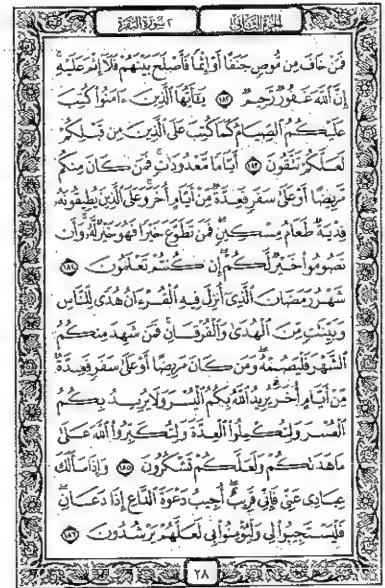 الجزء الثاني ٢ سورة البقرة
فَمَنْ خَافَ مِن مُّوصٍ جَنَفًا أَوْ إِثْمًا فَأَصْلَحَ بَيْنَهُمْ فَلَآ إِثْمَ عَلَيْهِ
إِنَّ ٱللَّهَ غَفُورٌ رَّحِيمٌ ١٨٢ يَٰٓأَيُّهَا ٱلَّذِينَ ءَامَنُوا۟ كُتِبَ
عَلَيْكُمُ ٱلصِّيَامُ كَمَا كُتِبَ عَلَى ٱلَّذِينَ مِن قَبْلِكُمْ
لَعَلَّكُمْ تَتَّقُونَ ١٨٣ أَيَّامًا مَّعْدُودَٰتٍ فَمَن كَانَ مِنكُم
مَّرِيضًا أَوْ عَلَىٰ سَفَرٍ فَعِدَّةٌ مِّنْ أَيَّامٍ أُخَرَ وَعَلَى ٱلَّذِينَ يُطِيقُونَهُۥ
فِدْيَةٌ طَعَامُ مِسْكِينٍ فَمَن تَطَوَّعَ خَيْرًا فَهُوَ خَيْرٌ لَّهُۥ وَأَن
تَصُومُوا۟ خَيْرٌ لَّكُمْ إِن كُنتُمْ تَعْلَمُونَ ١٨٤
شَهْرُ رَمَضَانَ ٱلَّذِىٓ أُنزِلَ فِيهِ ٱلْقُرْءَانُ هُدًى لِّلنَّاسِ
وَبَيِّنَٰتٍ مِّنَ ٱلْهُدَىٰ وَٱلْفُرْقَانِ فَمَن شَهِدَ مِنكُمُ
ٱلشَّهْرَ فَلْيَصُمْهُ وَمَن كَانَ مَرِيضًا أَوْ عَلَىٰ سَفَرٍ فَعِدَّةٌ
مِّنْ أَيَّامٍ أُخَرَ يُرِيدُ ٱللَّهُ بِكُمُ ٱلْيُسْرَ وَلَا يُرِيدُ بِكُمُ
ٱلْعُسْرَ وَلِتُكْمِلُوا۟ ٱلْعِدَّةَ وَلِتُكَبِّرُوا۟ ٱللَّهَ عَلَىٰ
مَا هَدَىٰكُمْ وَلَعَلَّكُمْ تَشْكُرُونَ ١٨٥ وَإِذَا سَأَلَكَ
عِبَادِى عَنِّى فَإِنِّى قَرِيبٌ أُجِيبُ دَعْوَةَ ٱلدَّاعِ إِذَا دَعَانِ
فَلْيَسْتَجِيبُوا۟ لِى وَلْيُؤْمِنُوا۟ بِى لَعَلَّهُمْ يَرْشُدُونَ ١٨٦
٢٨